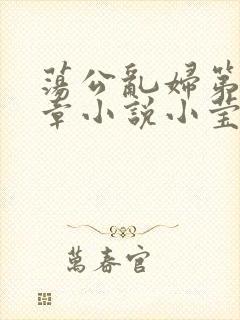 蕩公亂婦第
章小說小莹
萬春官